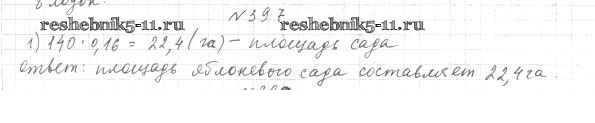 в лодок.
№397
reshebnik5-11.ru reshebnik5-11.ru
1) 140 · 0,16 = 22,4 (га) – площадь сада
ответ: площадь яблоневого сада составляет 22,4 га.